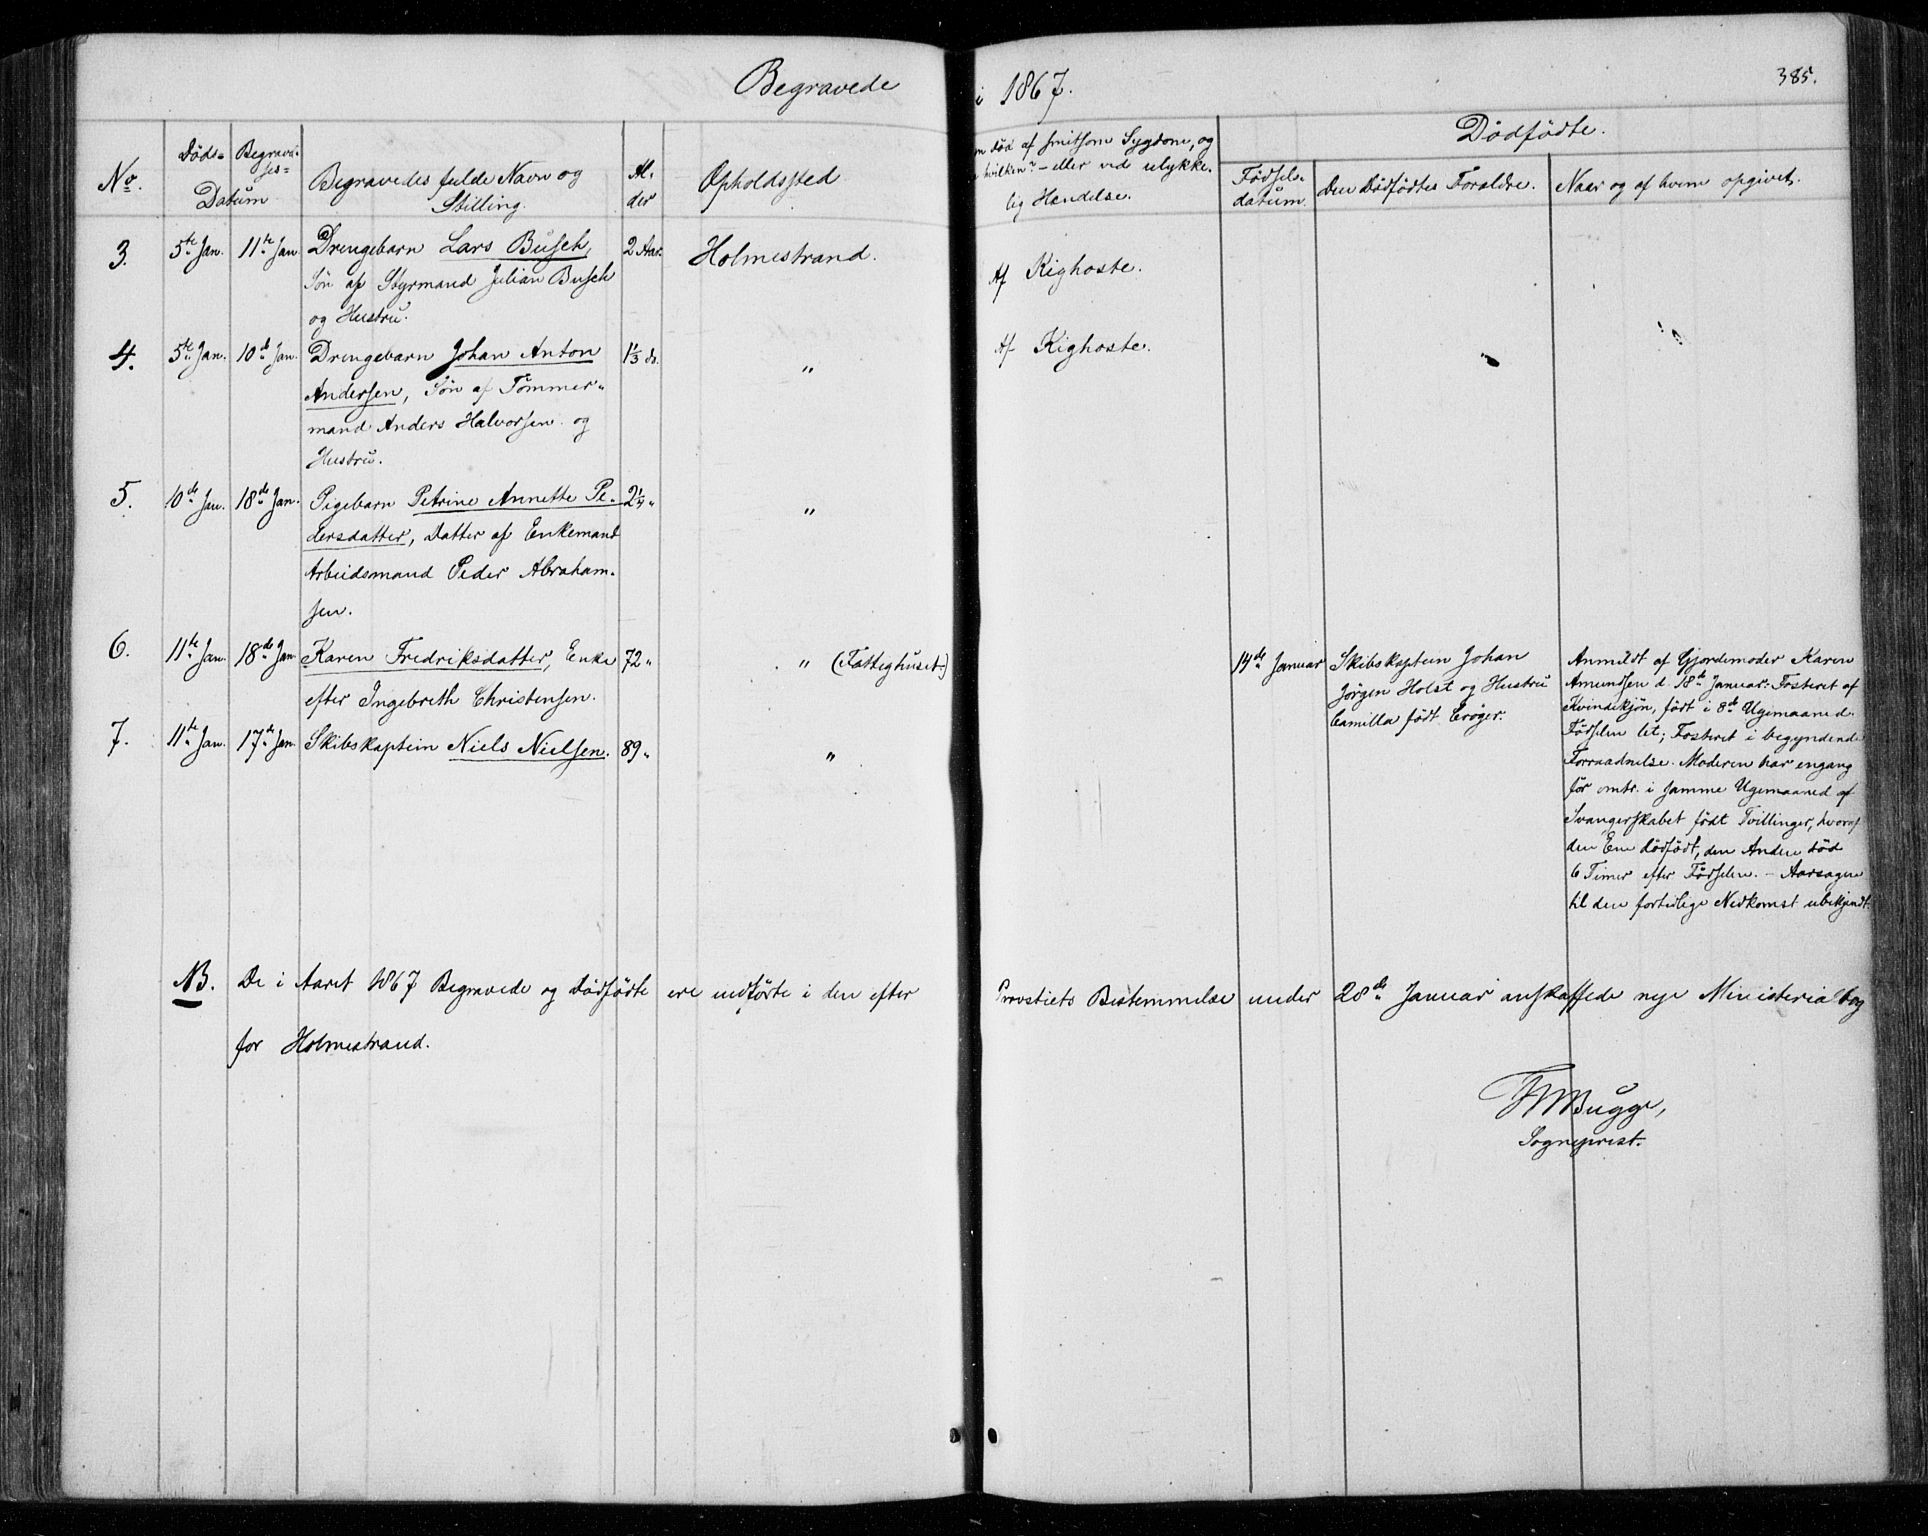 Begravede
i 1867.
385.
No.
Døds-
Begravel-
ses-
Datum
Begravedes fulde Navn og
Stilling.
Al-
der
Opholdssted
Om død af smitsom Sygdom, og
hvilken? - eller ved ulykke-
lig Hændelse.
Dødfødte.
Fødsels-
datum.
Den Dødfødtes Forældre.
Naar og af hvem opgivet.
3.
5te Jan.
11te Jan.
Drengebarn Lars Busch,
2 Aar.
Holmestrand.
Af Kighoste.
Søn af Styrmand Julian Busch
og Hustru.
4.
5te Jan.
10de Jan.
Drengebarn Johan Anton
1 1/3 do.
"
Af Kighoste.
Andersen, Søn af Tømmer-
mand Anders Halvorsen og
Hustru.
5.
10de Jan.
18de Jan.
Pigebarn Petrine Annette Pe-
2 1/4 "
"
dersdatter, Datter af Enkemand
Arbeidsmand Peder Abraham-
sen.
6.
11te Jan.
18de Jan.
Karen Fredriksdatter, Enke
72 "
" (Fattighuset.)
efter Ingebreth Christensen.
7.
11te Jan.
17de Jan.
Skibskaptein Niels Nielsen.
89 "
"
14de Januar
Skibskaptein Johan
Jørgen Holst og Hustru
Camilla født Crøger.
Anmeldt af Gjordemoder Karen
Amundsen d. 18de Januar: Fosteret af
Kvindekjøn, født i 8de Ugemaaned.
Fødselen let; Fosteret i begyndende
Forraadnelse. Moderen har engang
før omtr. i samme Ugemaaned af
Svangerskabet født Tvillinger, hvoraf
den Ene dødfødt, den Anden død
6 Timer efter Fødselen. - Aarsagen
til den fortidlige Nedkomst ubekjendt.
NB. De i Aaret 1867 Begravede og Dødfødte ere indførte i den efter Provstiets Bestemmelse under 28de Januar anskaffede nye Ministerialbog
for Holmestrand.
Bugge,
Sogneprest.